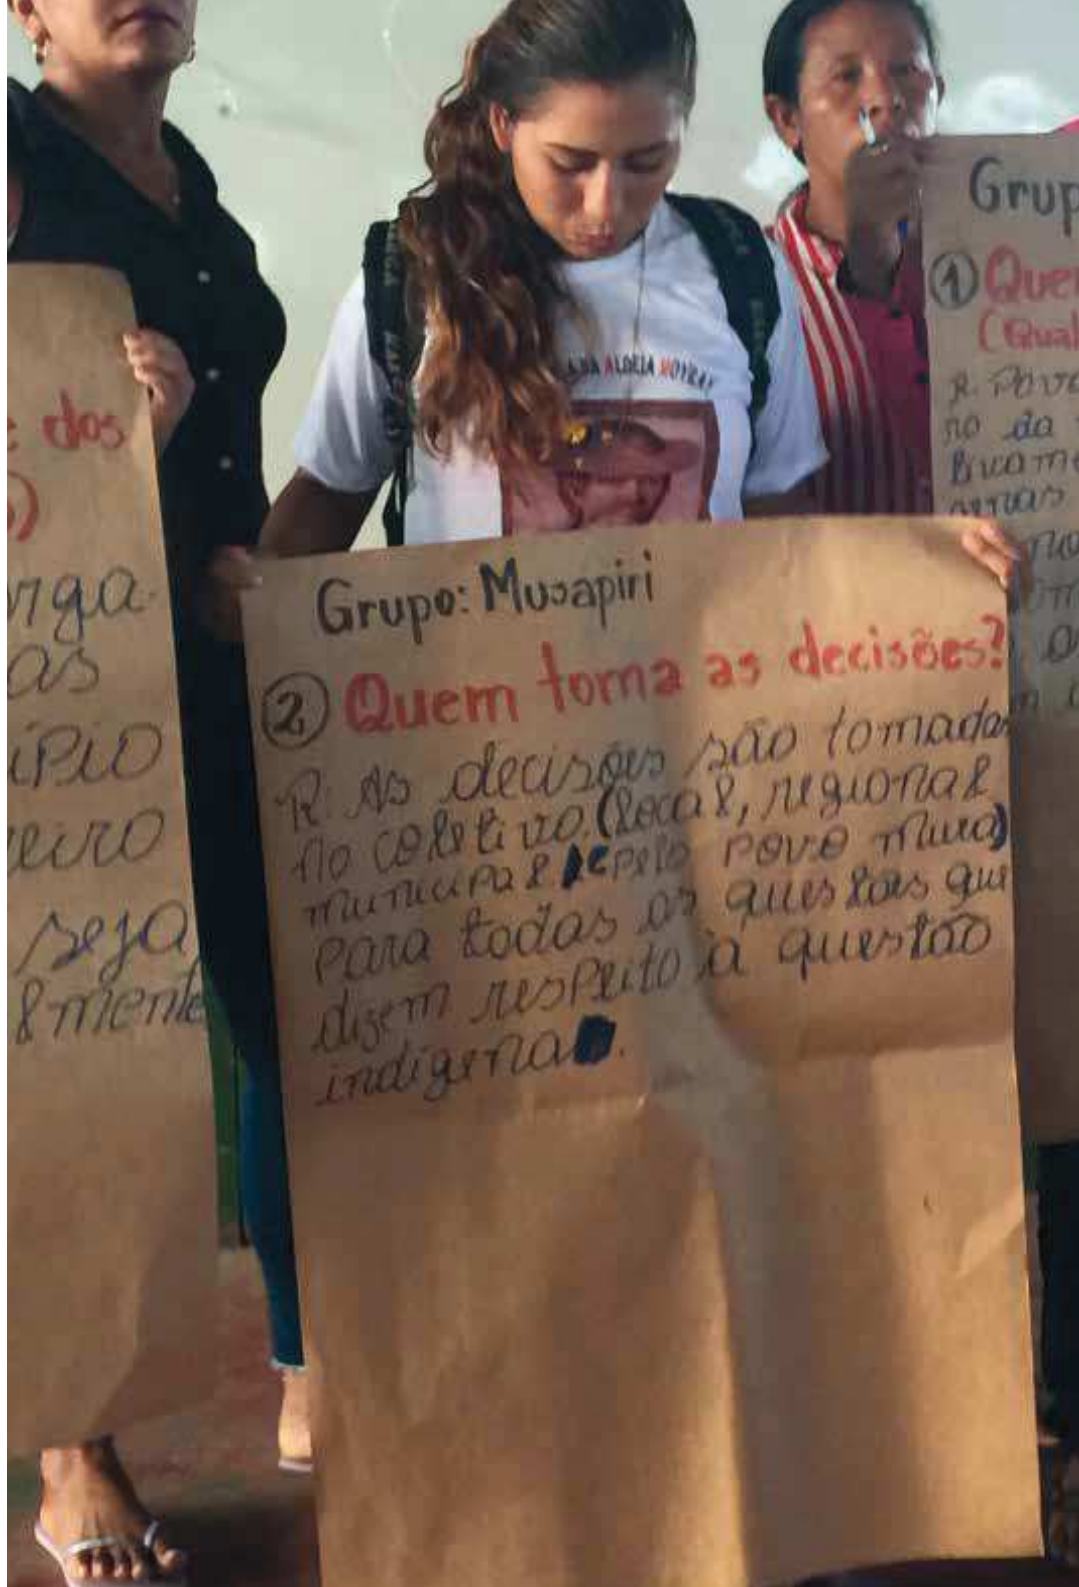 e dos
rga-
as
ípio
eiro
seja
lmente
DA ALDEIA MOYRAY
Grupo: Musapiri
② Quem toma as decisões?
R: As decisões são tomadas
no coletivo (local, regional
municipal e pelo povo mura)
para todas as questões que
dizem respeito à questão
indígena.
Grup
① Quem
(Qual
R. Povo
no da